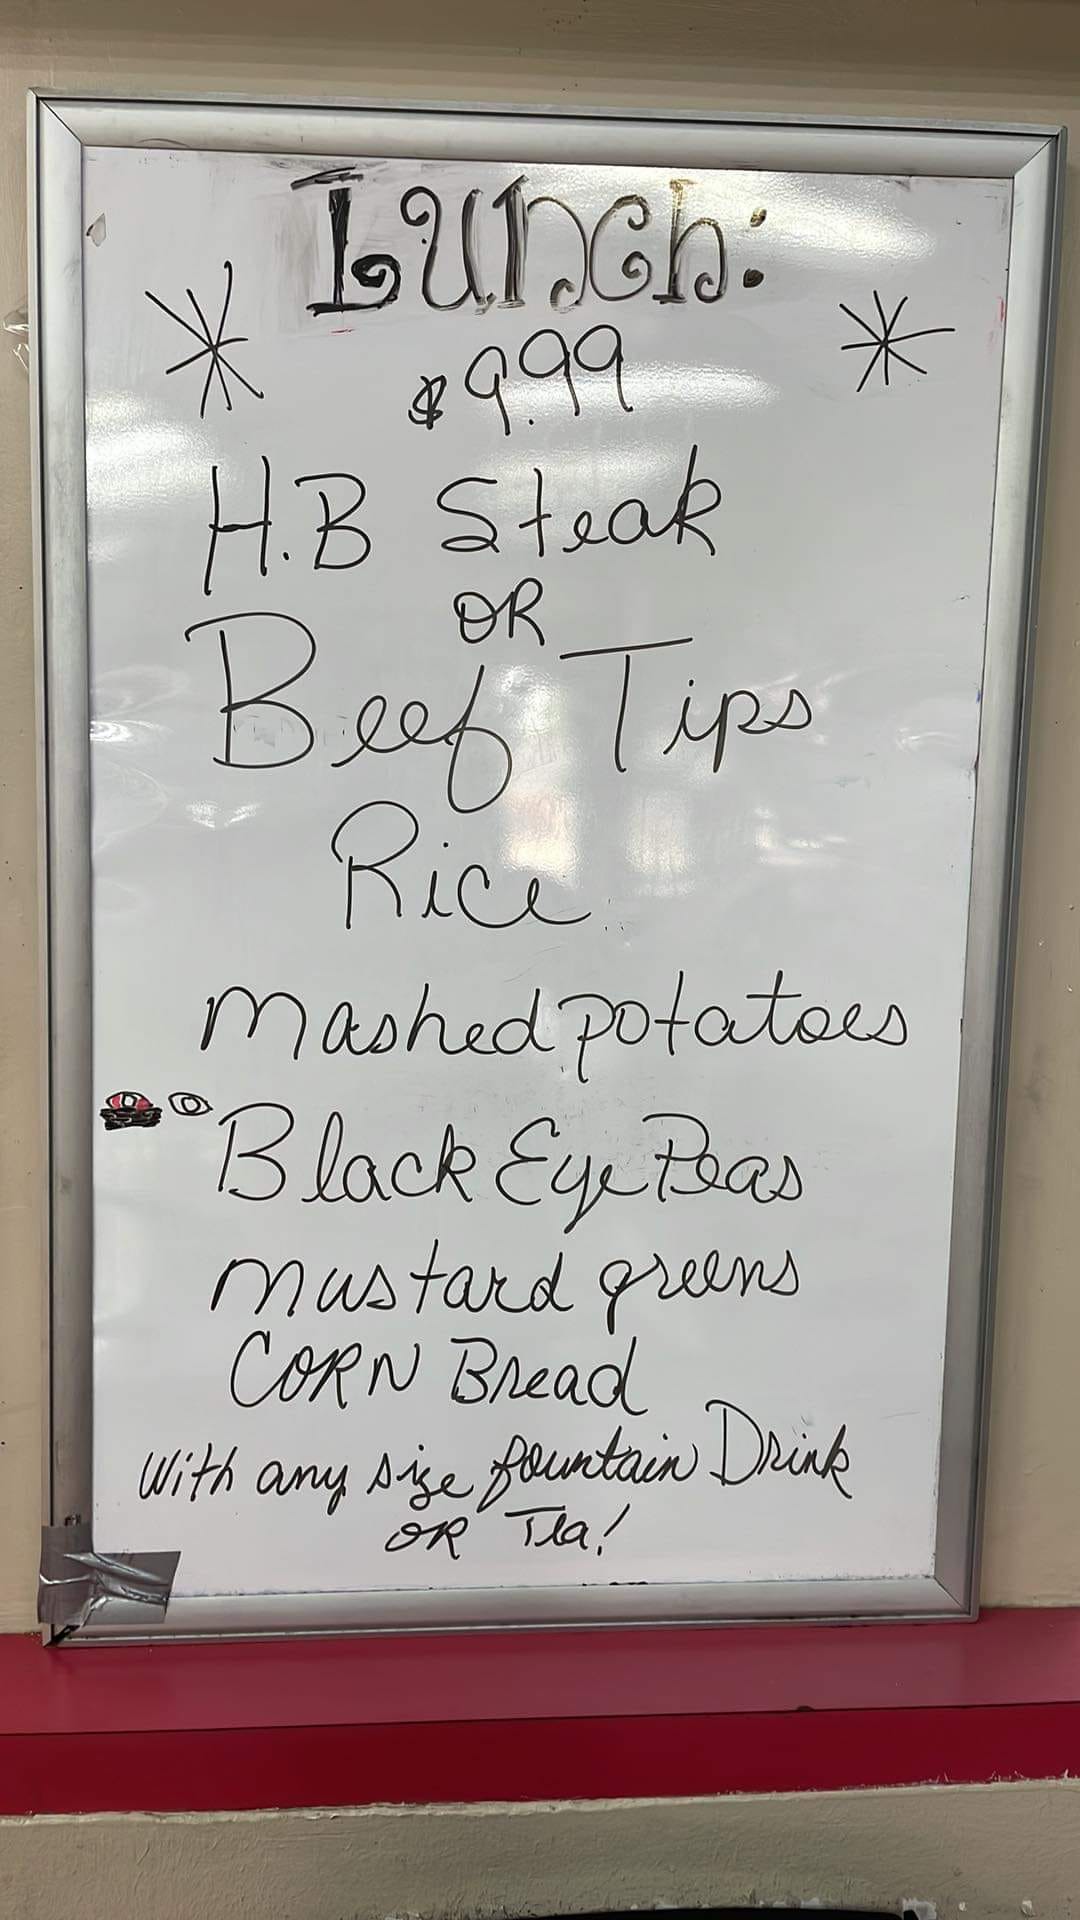 Lunch:
$9.99
H.B Steak
OR
Beef Tips
Rice
mashed potatoes
Black Eye Peas
mustard greens
CORN Bread
With any size fountain Drink
OR Tea!